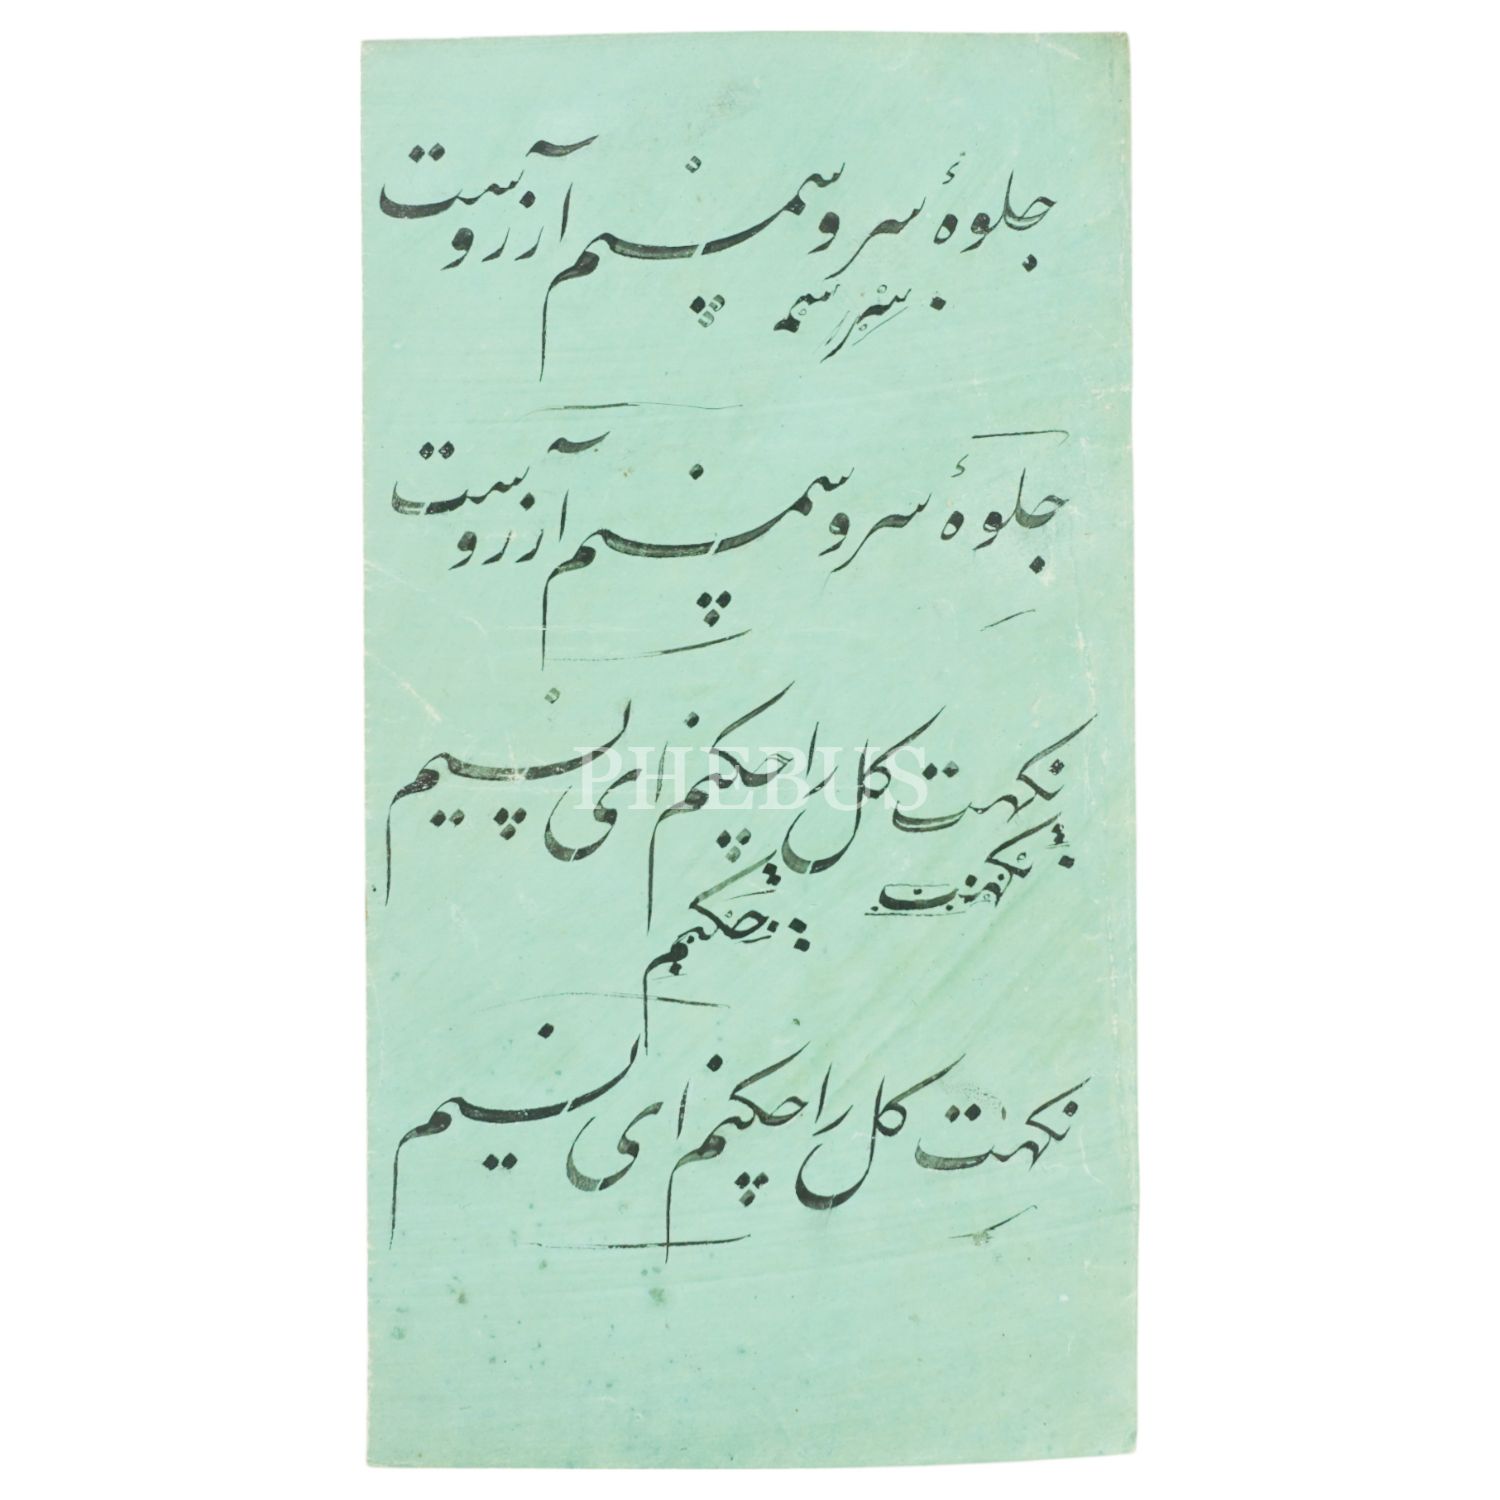 جلوهٔ سرو سمنم آرزوست
سر سمـ
جلوهٔ سرو سمنم آرزوست
نکهت گل را چکنم ای نسیم
نکهت
چکنم
PHEBUS
نکهتِ کل را چکنم ای نسیم